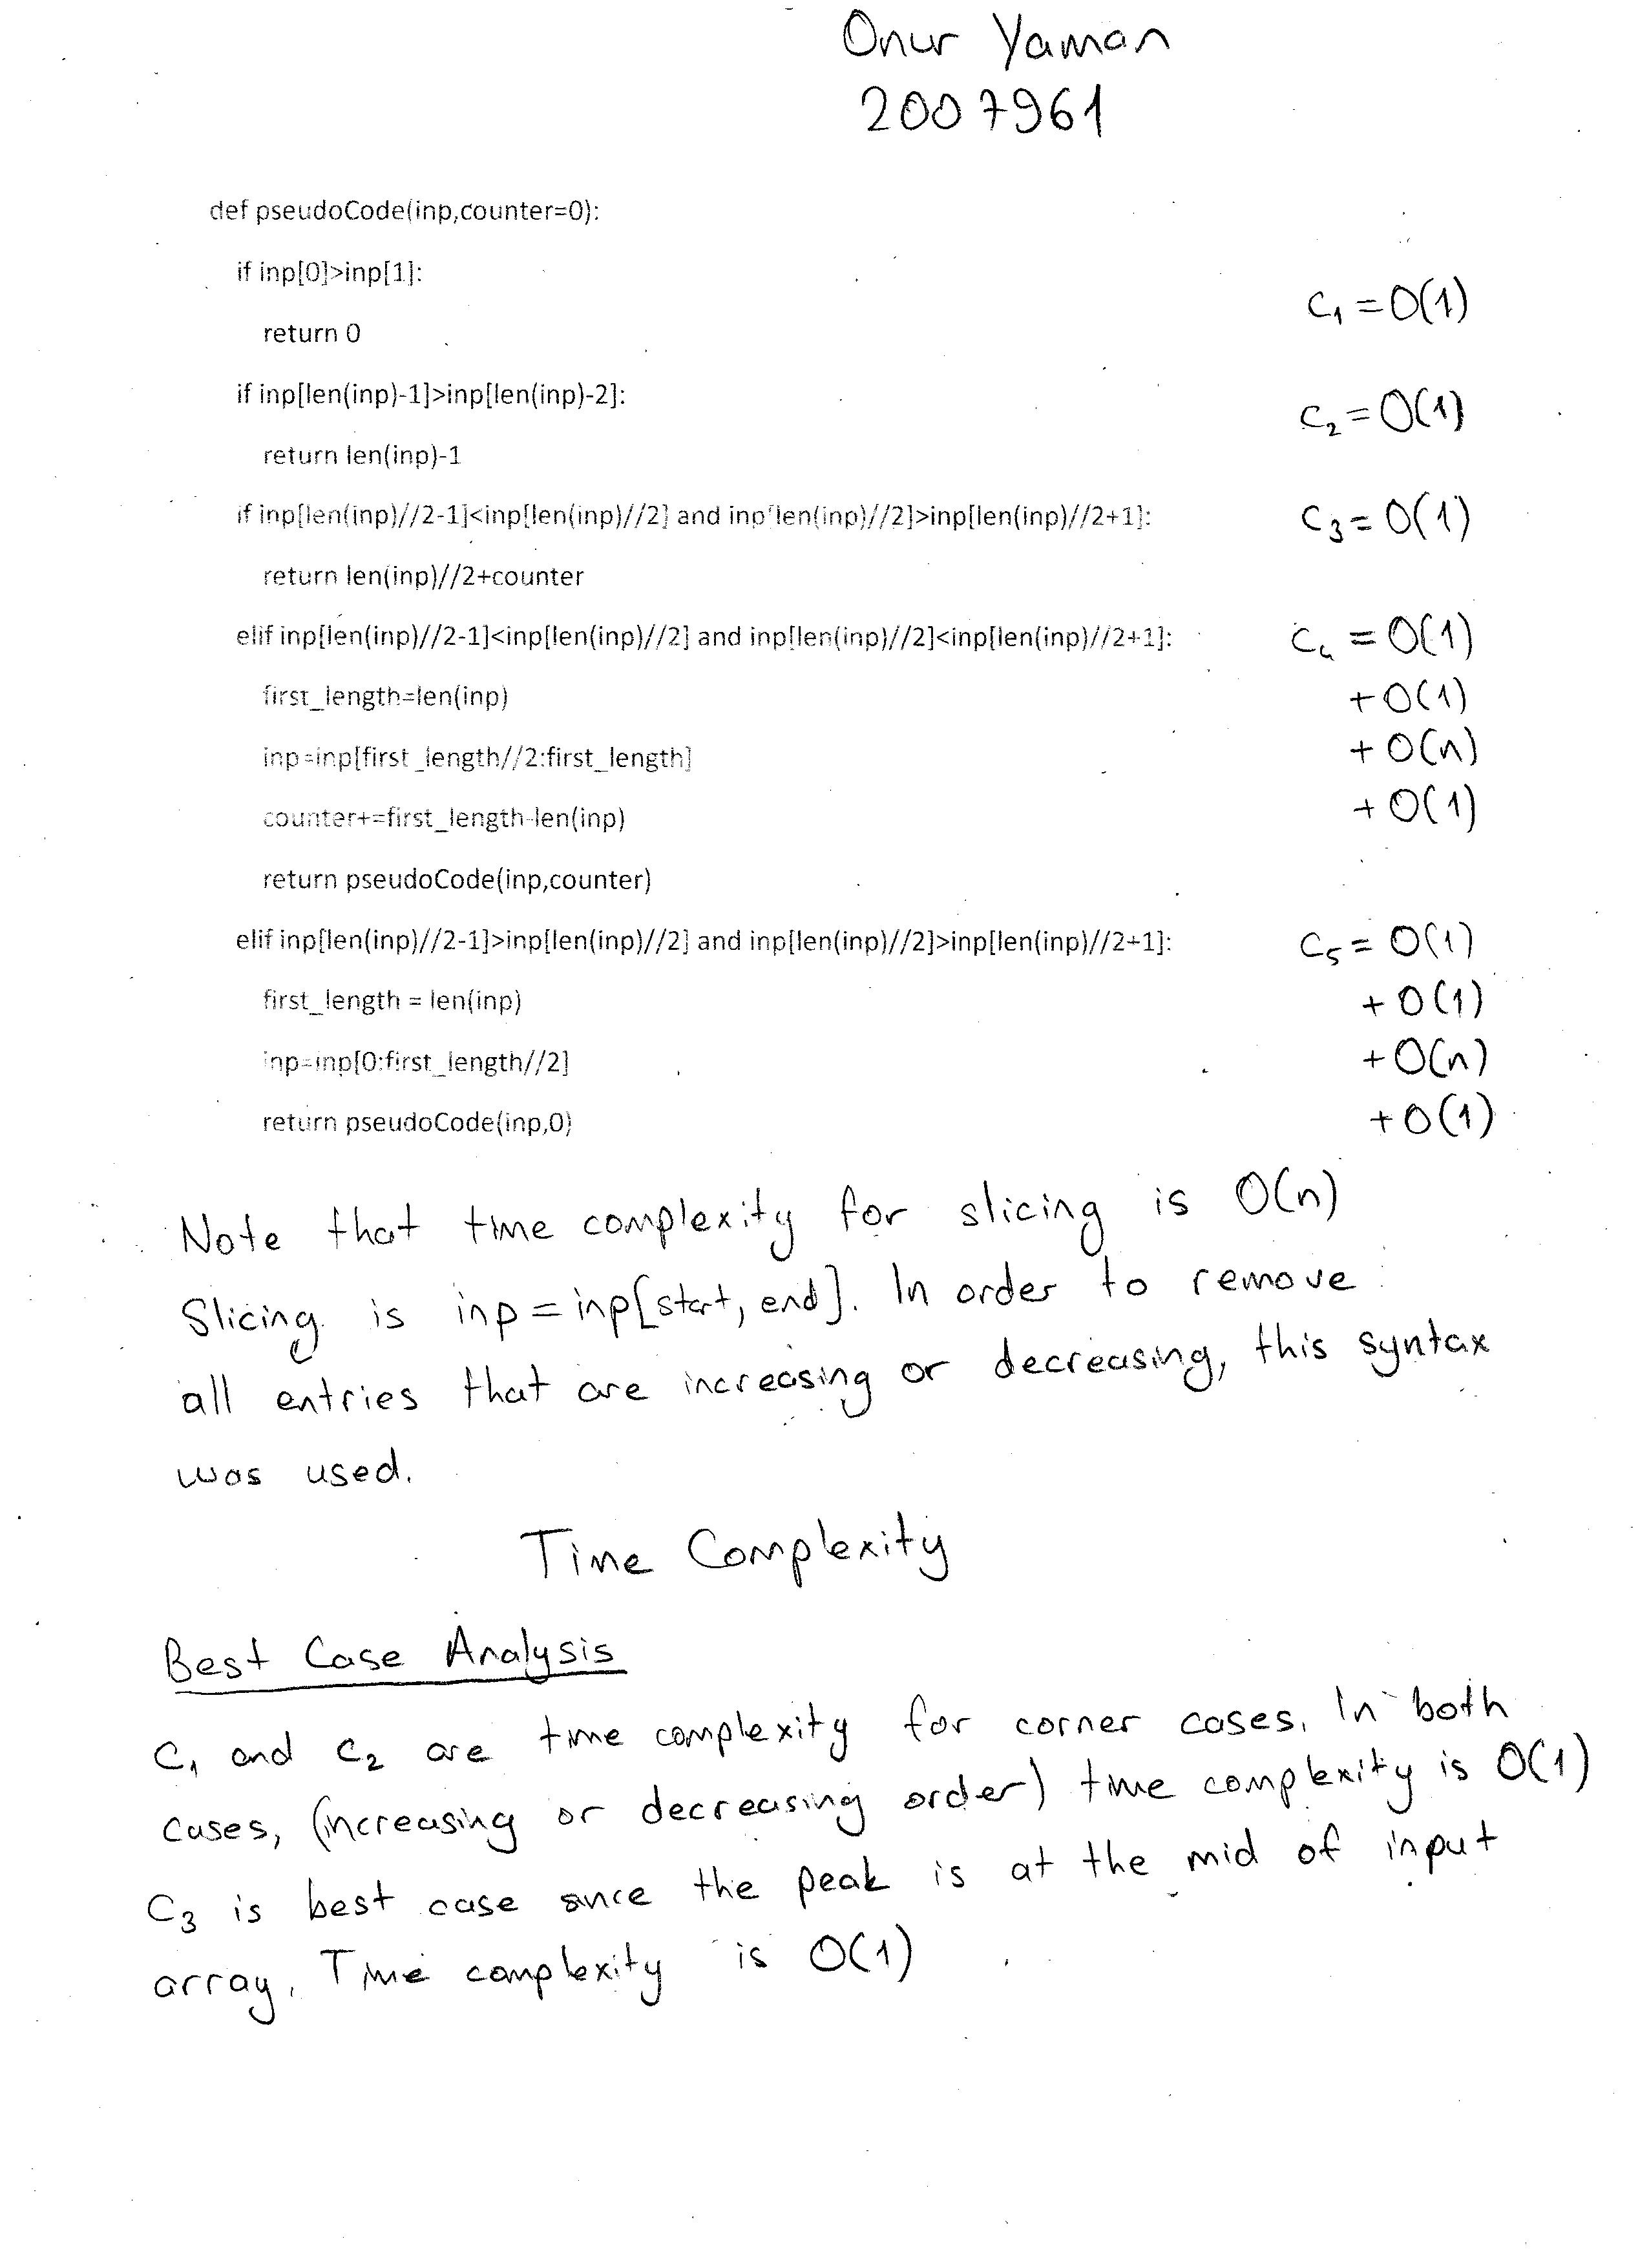 Onur Yaman
2007961
def pseudoCode(inp,counter=0):
if inp[0]>inp[1]:
C₁ = O(1)
return 0
if inp[len(inp)-1]>inp[len(inp)-2]:
C₂ = O(1)
return len(inp)-1
if inp[len(inp)//2-1]<inp[len(inp)//2] and inp[len(inp)//2]>inp[len(inp)//2+1]: C₃ = O(1)
return len(inp)//2+counter
elif inp[len(inp)//2-1]<inp[len(inp)//2] and inp[len(inp)//2]<inp[len(inp)//2+1]: C₄ = O(1)
first_length=len(inp) + O(1)
inp=inp[first_length//2:first_length] + O(n)
counter+=first_length-len(inp) + O(1)
return pseudoCode(inp,counter)
elif inp[len(inp)//2-1]>inp[len(inp)//2] and inp[len(inp)//2]>inp[len(inp)//2+1]: C₅ = O(1)
first_length = len(inp) + O(1)
inp=inp[0:first_length//2] + O(n)
return pseudoCode(inp,0) + O(1)
Note that time complexity for slicing is O(n)
Slicing is inp = inp[start, end]. In order to remove
all entries that are increasing or decreasing, this syntax
was used.
Time Complexity
Best Case Analysis
C₁ and C₂ are time complexity for corner cases. In both
cases, (increasing or decreasing order) time complexity is O(1)
C₃ is best case since the peak is at the mid of input
array. Time complexity is O(1)